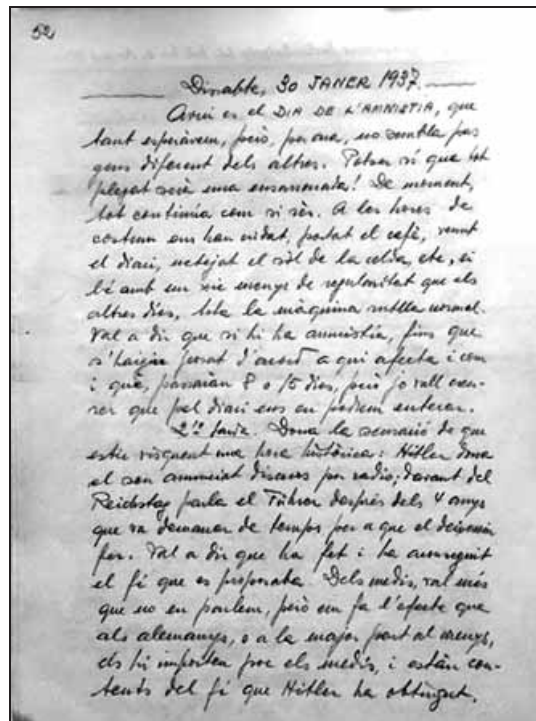 52
Dissabte, 30 JANER 1937.
Avui es el DIA DE L'AMNISTIA, que
tant esperàvem, però, per ara, no sembla pas
gens diferent dels altres. Potser sí que tot
plegat serà una ensarronada! De moment,
tot continúa com si rès. A les hores de
costum ens han cridat, portat el cafè, venut
el diari, netejat el sòl de la celda, etc, si
bé amb un xic menys de regularitat que els
altres dies, tota la màquina rutlla normal.
Val a dir que si hi ha amnistia, fins que
s'hagin posat d'acord a qui afecta i com
i què, passaràn 8 o 15 dies, però jo vull creu-
rer que pel diari ens en podem enterar.
tarda. Dona la sensació de que
estic visquent una hora històrica: Hitler dona
el seu anunciat discurs per radio; davant del
Reichstag parla el Führer després dels 4 anys
que va demanar de temps per a que el deixessin
fer. Val a dir que ha fet i ha aconseguit
el fi que es proposaba. Dels medis, val més
que no en parlem, però em fa l'efecte que
als alemanys, o a la major part al menys,
els hi importen poc els medis, i estàn con-
tents del fi que Hitler ha obtingut.